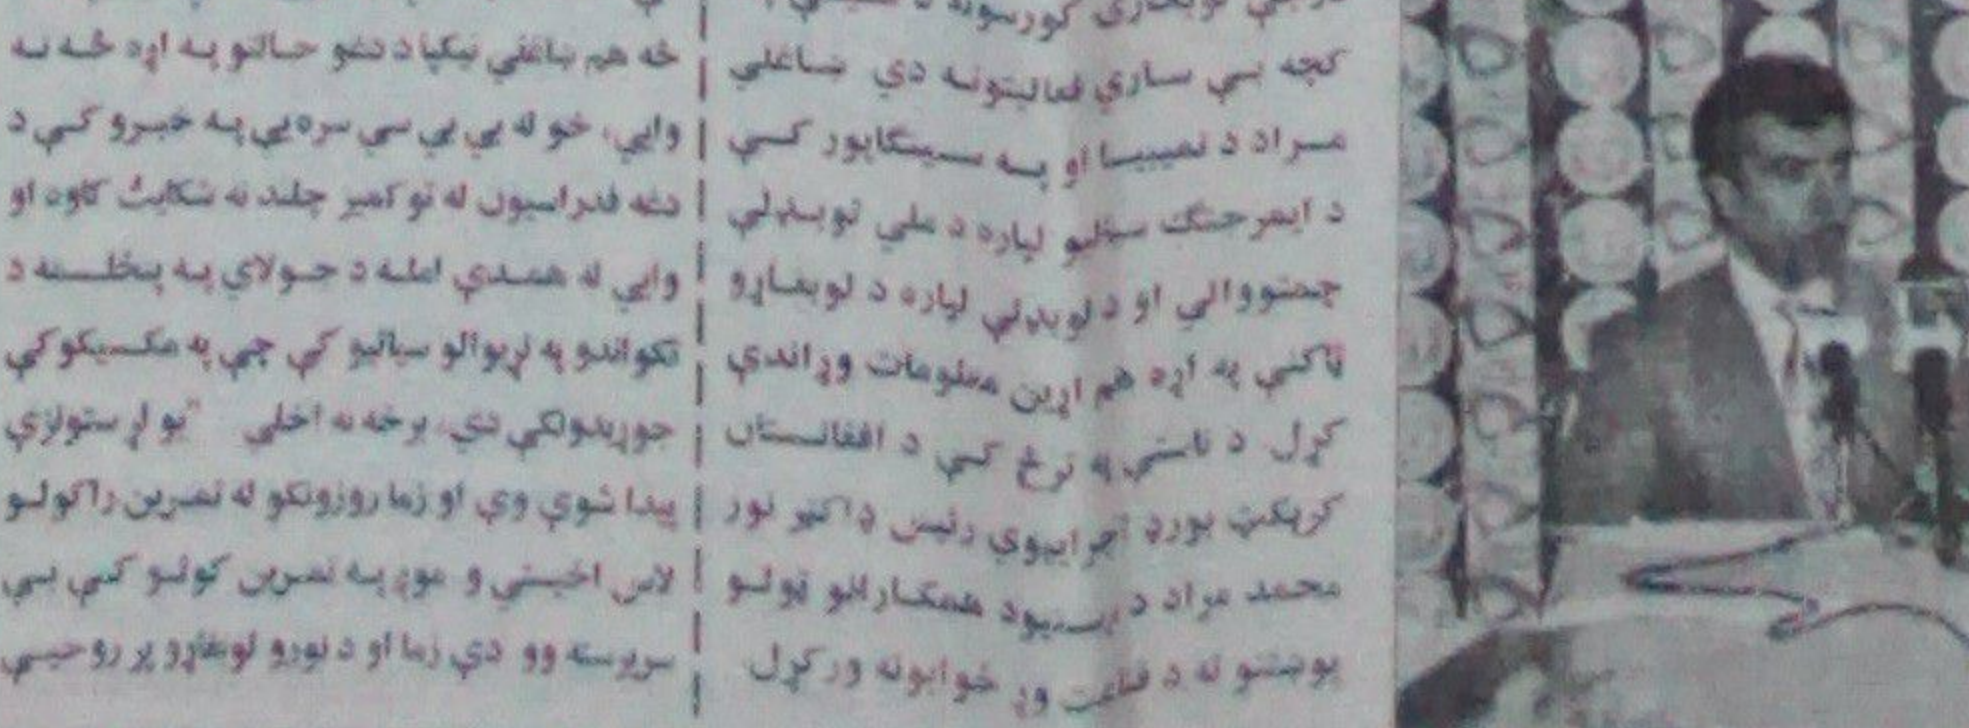 کچه بې ساري فعالیتونه دي ښاغلي
مراد د نمیبیا او په سینګاپور کې
د ایمرجنګ سیالیو لپاره د ملي لوبډلې
چمتووالي او د لوبډلې لپاره د لوبغاړو
ټاکنې په اړه هم اړین معلومات وړاندې
کړل. د ناستې په ترڅ کې د افغانستان
کرېکټ بورډ اجراییوي رئیس ډاکټر نور
محمد مراد د همکارانو ټولو
پوښتنو ته د قناعت وړ ځوابونه ورکړل
څه هم ښاغلي نیکپا د تېرو حالتو په اړه څه نه
وایي، خو له بي بي سي سره یې په خبرو کې د
دغه فدراسیون له نو کمیز چلند نه شکایت کاوه او
وایي له همدې امله د جولای په پنځلسمه د
تکواندو په نړیوالو سیالیو کې چې په مکسیکو کې
جوړېدونکې دي، برخه نه اخلي "یو لړ ستونزې
پیدا شوې وې او زما روزونکو له تمرین راکولو
لاس اخیستی و موږ په تمرین کولو کې بې
سرپرسته وو دې زما او د نورو لوبغاړو پر روحیې